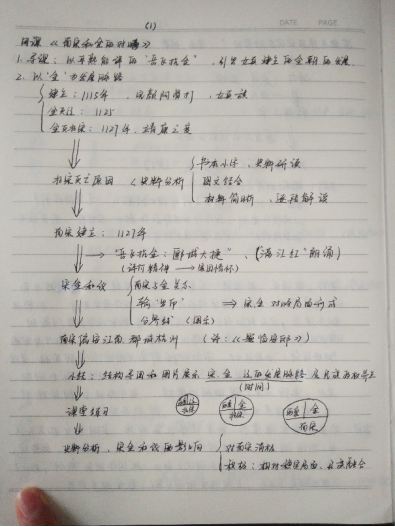 (1)
DATE PAGE
听课《南宋和金的对峙》
1. 导课：以耳熟能详的“岳飞抗金”，引出女真建立的金朝的发展
2. 以“金”为发展脉络
建立：1115年 完颜阿骨打 女真族
金灭辽：1125
金灭北宋：1127年，靖康之变
北宋灭亡原因 史料分析
书本小字，史料研读
图文结合
南宋建立：1127年
“岳飞抗金：郾城大捷”，《满江红》朗诵
(精神 → 家国情怀)
宋金和议
南宋与金关系
给“岁币” ⇒ 宋、金对峙局面形成
分界线 (图示)
南宋偏安江南，都城杭州 (诗：《题临安邸》)
小结：结构导图和图片展示 宋、金、辽的发展脉络
(时间)
课堂练习
西夏 辽 北宋
西夏 金 北宋
西夏 金 南宋
史料分析，宋金和议的影响
对南宋消极
积极：相对稳定局面，民族融合